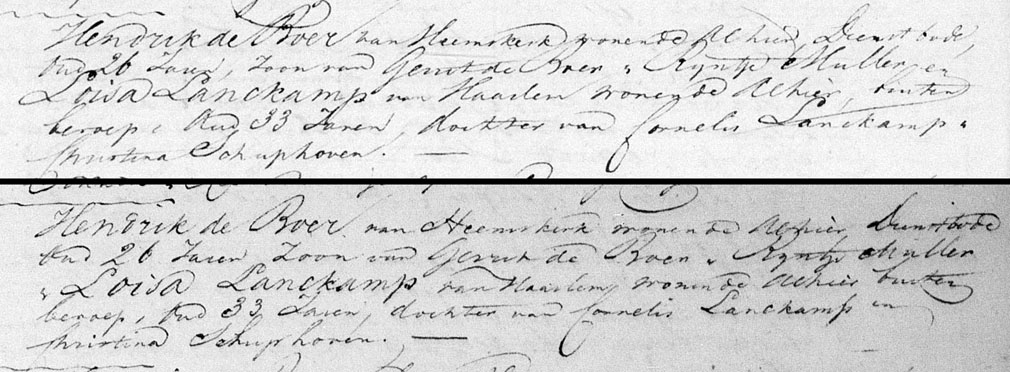 Hendrik de Boer van Heemskerk wonende Alhier, Dienstbode,
Oud 26 Jaren, Zoon van Gerrit de Boer & Ryntje Muller en
Loisa Lanckamp van Haarlem wonende Alhier, buiten
beroep, Oud 33 Jaren, dochter van Cornelis Lanckamp &
Christina Schuphoven. —
Hendrik de Boer van Heemskerk wonende Alhier, Dienstbode
Oud 26 Jaren Zoon van Gerrit de Boer & Ryntje Muller
& Loisa Lanckamp van Haarlem wonende Alhier buiten
beroep, Oud 33 Jaren, dochter van Cornelis Lanckamp en
Christina Schuphoven. —